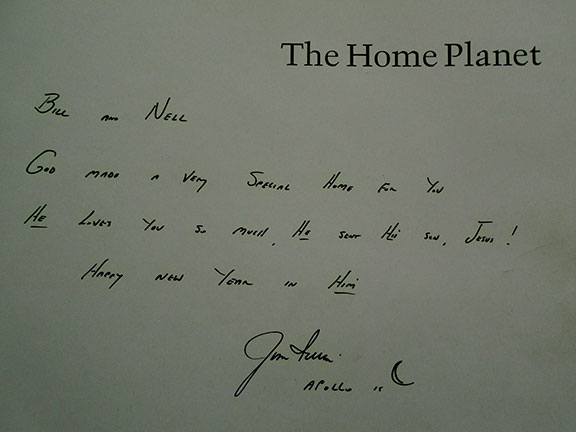 The Home Planet
Bill and Nell
God made a very special home for you
He loves you so much, He sent His son, Jesus!
Happy New Year in Him
Jim Irwin
Apollo 15